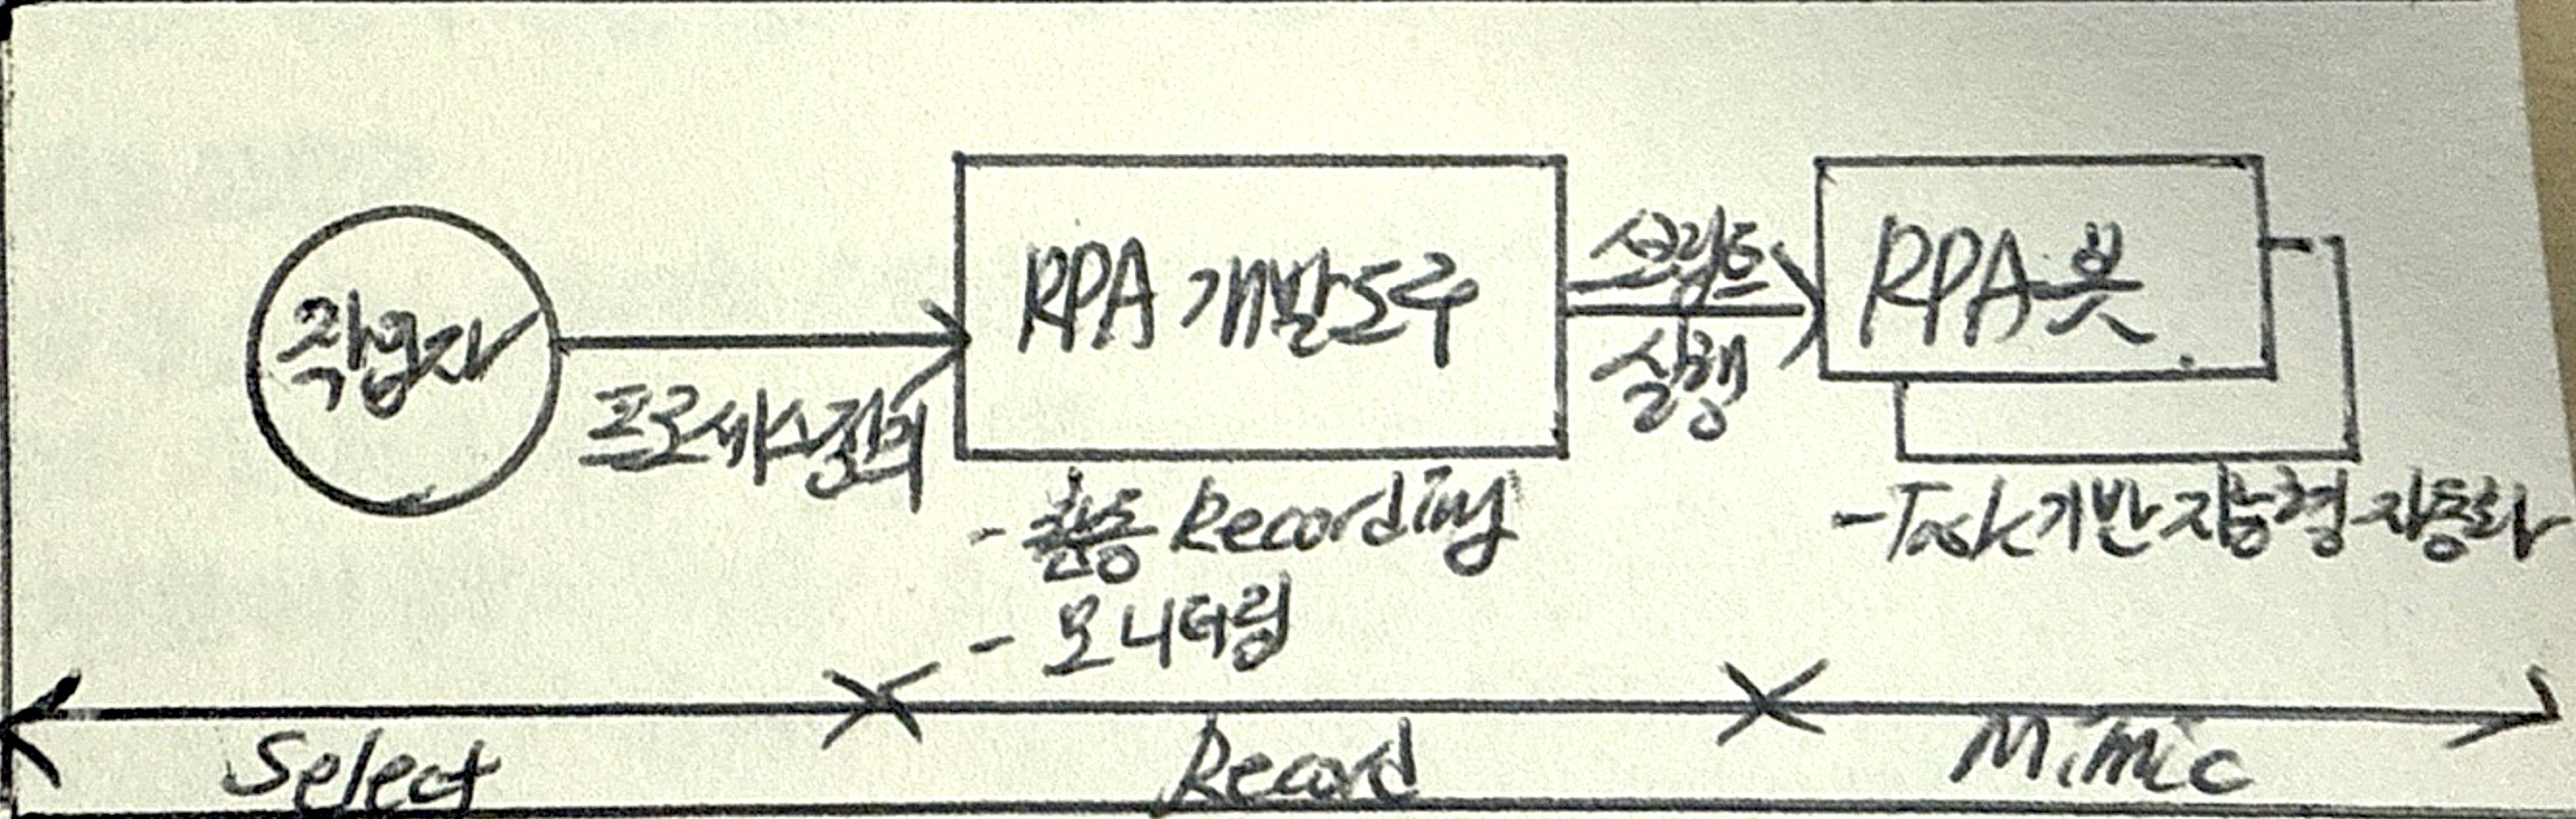 작업자
프로세스정의
RPA 개발도구
- 활동 Recording
- 모니터링
스크립트
실행
RPA봇
- Task기반 지능형 자동화
Select
Record
Mimic